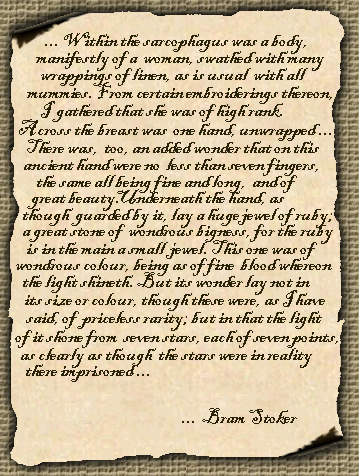 ... Within the sarcophagus was a body,
manifestly of a woman, swathed with many
wrappings of linen, as is usual with all
mummies. From certain embroiderings thereon,
I gathered that she was of high rank.
Across the breast was one hand, unwrapped ...
There was, too, an added wonder that on this
ancient hand were no less than seven fingers,
the same all being fine and long, and of
great beauty. Underneath the hand, as
though guarded by it, lay a huge jewel of ruby;
a great stone of wondrous bigness, for the ruby
is in the main a small jewel. This one was of
wondrous colour, being as of fine blood whereon
the light shineth. But its wonder lay not in
its size or colour, though these were, as I have
said, of priceless rarity; but in that the light
of it shone from seven stars, each of seven points,
as clearly as though the stars were in reality
there imprisoned ...
... Bram Stoker